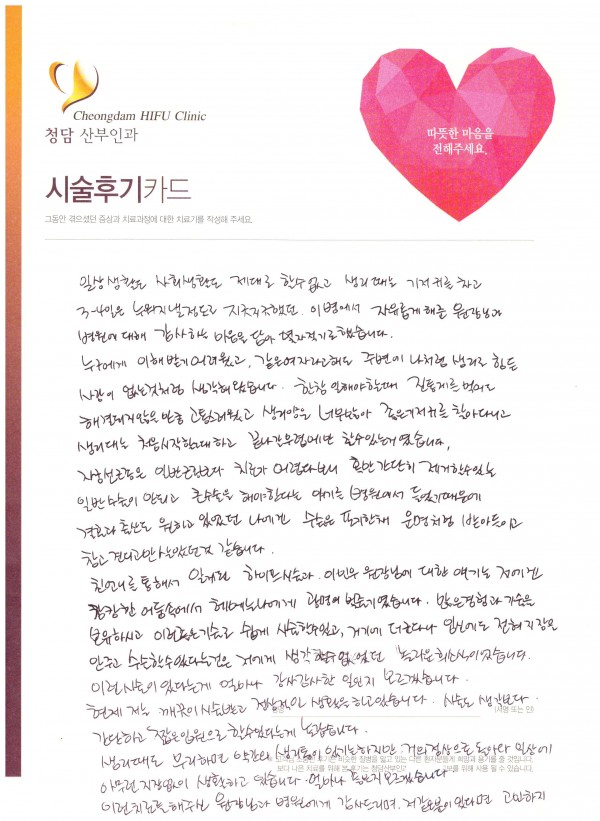 Cheongdam HIFU Clinic
청담 산부인과
따뜻한 마음을
전해주세요.
시술후기카드
그동안 겪으셨던 증상과 치료과정에 대한 치료기를 작성해 주세요.
일상생활도 사회생활도 제대로 할수없고 생리때는 기저귀를 차고
3-4일은 누워지낼정도로 지긋지긋했던. 이병에서 자유롭게해준 원장님과
병원에 대해 감사하는 마음을 담아 몇자적기로했습니다.
누구에게 이해받기어려웠고, 같은여자라고해도 주변에 나처럼 생리로 힘든
사람이 없는것처럼 생각해왔습니다. 한창 일해야하는데 진통제를 먹어도
해결되지않은 만큼 고통스러웠고 생리양은 너무많아 좁은기저귀를 찾아다니고
생리때는 처음시작할때하고 끝나갈무렵에만 할수있는게 였습니다.
자궁선근증은 일반근종보다 치료가 어렵다보니 혹만 간단히 제거할수있는
일반수술이 안되고 큰수술을 해야한다는 얘기를 병원에서 들었기때문에
결혼과 출산도 원하고 있었던 나에겐 수술은 포기한채 운명처럼 받아들이고
참고 견디고만 살았던것 같습니다.
친언니를 통해서 알게된 하이푸시술과. 이민우 원장님에 대한 얘기는 저에겐
캄캄한 어둠속에서 헤메는나에게 광명의 빛줄기였습니다. 많은경험과 기술을
보유하시고 이러한좋은기술로 쉽게 시술할수있고, 거기에 더한다나 임신에도 전혀 지장을
안주고 수술할수있다는것은 저에게 생각할수없었던 놀라운희소식이었습니다.
이런시술이 있다는게 얼마나 감사감사한 일인지 모르겠습니다.
현재 저는 깨끗이 시술받고 정상적인 생활을 하고있습니다. 시술도 생각보다.
(서명 또는 인)
간단하고 짧은입원으로 할수있다는게 놀랍습니다.
생리때도 무리하면 약간의 생리통이 있기는하지만 거의정상으로 돌아와 일상에
아무런 지장없이 생활하고 있습니다. 얼마나 좋은지모르겠습니다
이런치료를해주신 원장님과 병원에게 감사드리며, 저같은분이있다면 고민하지